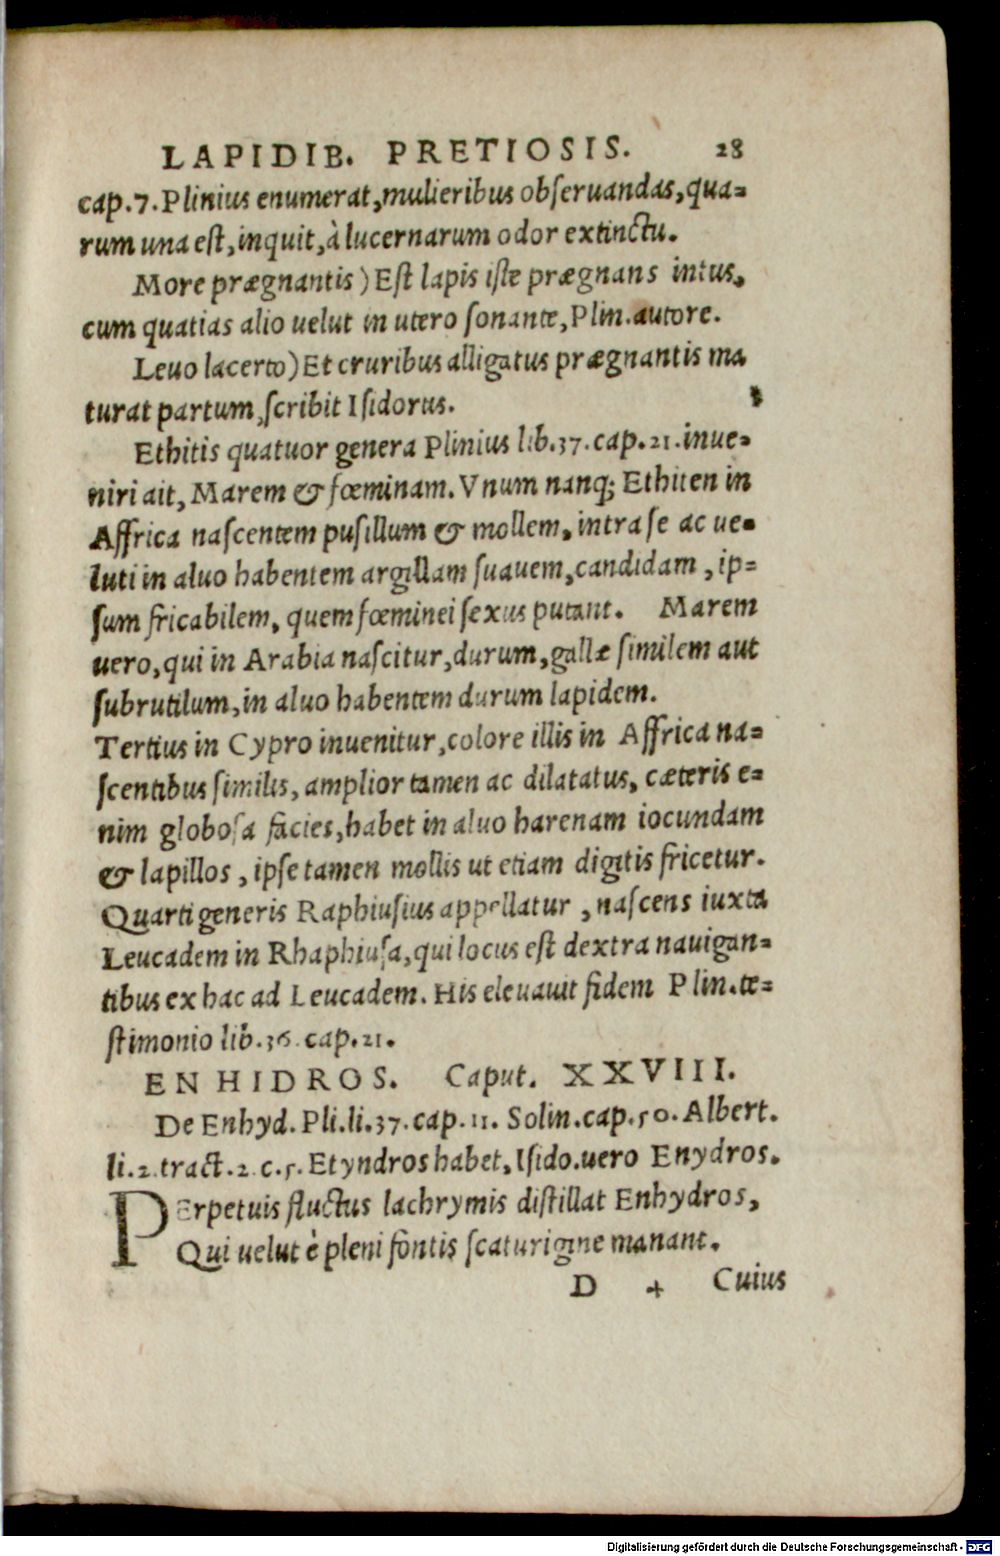 LAPIDIB. PRETIOSIS. 28
cap.7.Plinius enumerat,mulieribus obseruandas,qua-
rum una est,inquit,à lucernarum odor extinctu.
More prægnantis) Est lapis iste prægnans intus,
cum quatias alio uelut in utero sonante,Plin.autore.
Leuo lacerto) Et cruribus alligatus prægnantis ma
turat partum,scribit Isidorus.
Ethitis quatuor genera Plinius lib.37.cap.21.inue-
niri ait, Marem & fœminam. Vnum nanq; Ethiten in
Affrica nascentem pusillum & mollem, intra se ac ue-
luti in aluo habentem argillam suauem,candidam, ip-
sum fricabilem, quem fœminei sexus putant. Marem
uero,qui in Arabia nascitur,durum,gallæ similem aut
subrutilum,in aluo habentem durum lapidem.
Tertius in Cypro inuenitur,colore illis in Affrica na-
scentibus similis, amplior tamen ac dilatatus, cæteris e-
nim globosa facies,habet in aluo harenam iocundam
& lapillos, ipse tamen mollis ut etiam digitis fricetur.
Quarti generis Raphiusius appellatur, nascens iuxta
Leucadem in Rhaphiusa,qui locus est dextra nauigan-
tibus ex hac ad Leucadem. His eleuauit fidem Plin.te-
stimonio lib.36.cap.21.
ENHIDROS. Caput. XXVIII.
De Enhyd. Pli.li.37.cap.11. Solin.cap.50. Albert.
li.2.tract.2.c.5. Etyndros habet, Isido.uero Enydros.
PErpetuis fluctus lachrymis distillat Enhydros,
Qui uelut è pleni fontis scaturigine manant.
D 4 Cuius
Digitalisierung gefördert durch die Deutsche Forschungsgemeinschaft - DFG